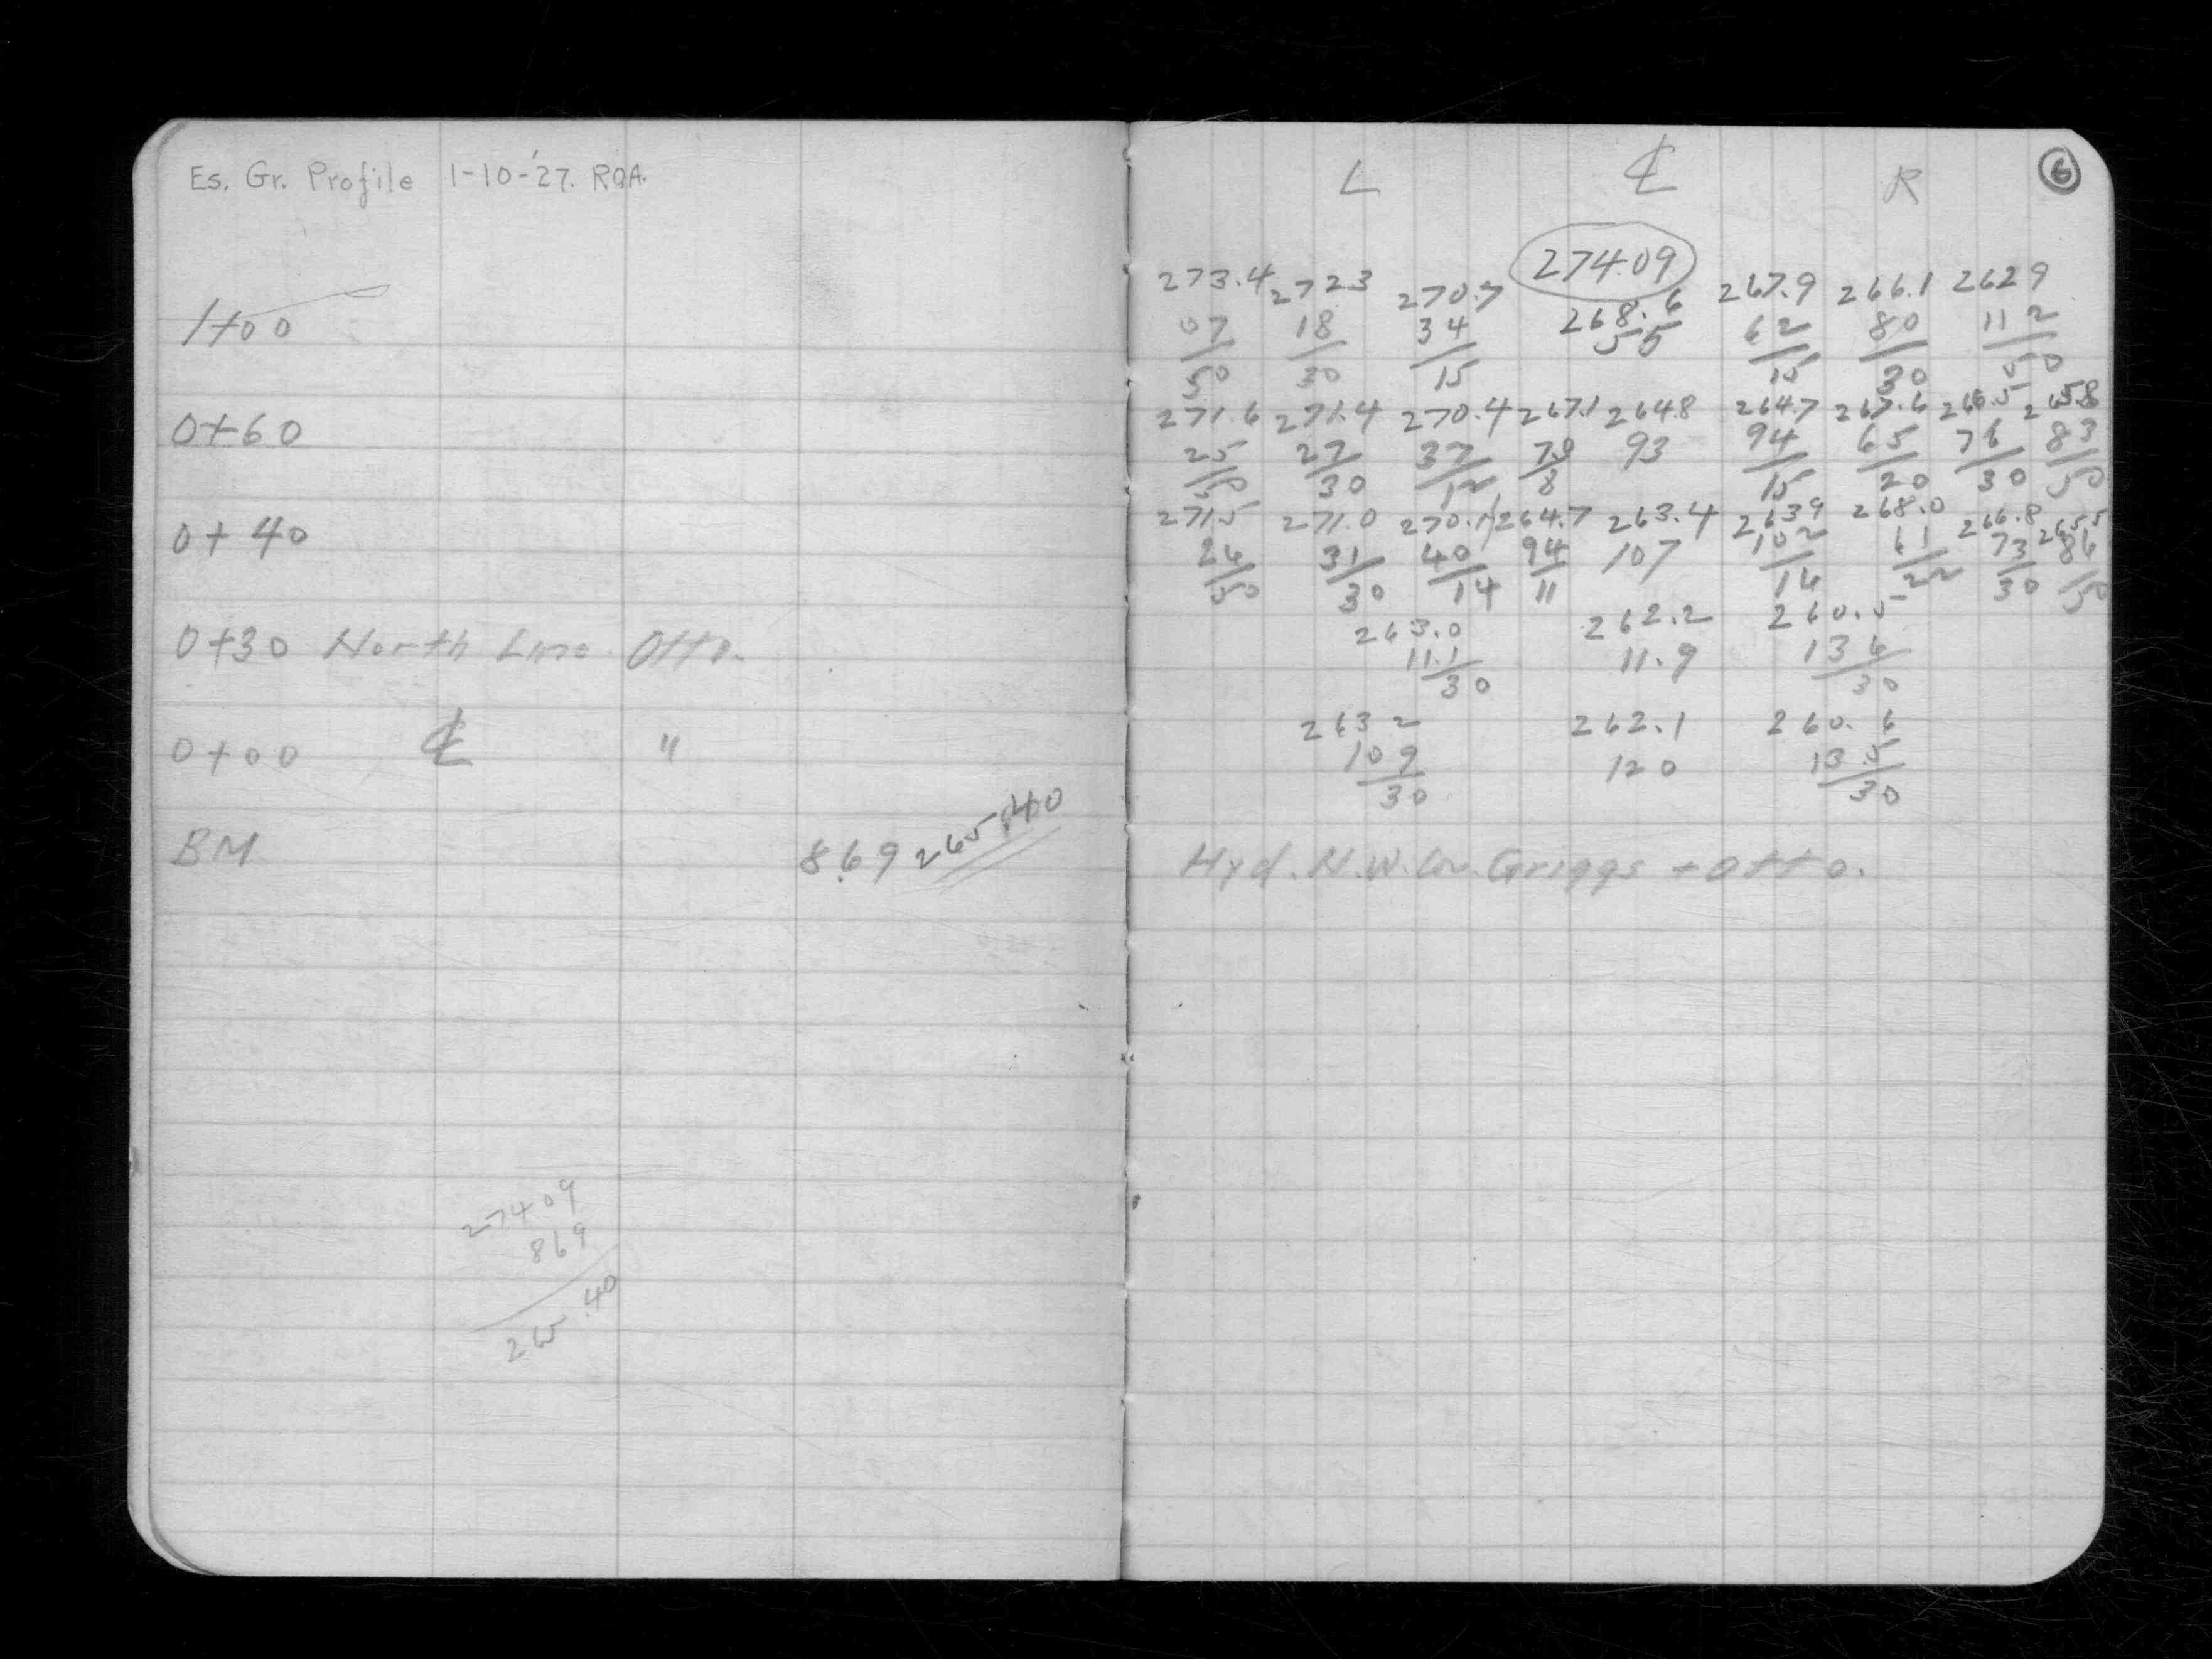 Es. Gr. Profile 1-10-'27. RQA.
1+00
0+60
0+40
0+30 North Line Otto.
0+00 ℄ "
BM 8.69 265.40
27409
869
265.40
L ℄ R 6
274.09
273.4 2723 270.7 268.6 267.9 266.1 2629
07/50 18/30 34/15 55 62/15 80/30 112/50
271.6 271.4 270.4 267.1 264.8 264.7 267.6 266.5 265.8
25/50 27/30 37/12 7.0/8 93 94/15 65/20 76/30 83/50
271.5 271.0 270.1 264.7 263.4 2639 268.0 266.8 265.5
26/50 31/30 40/14 94/11 107 102/16 61/22 73/30 86/50
263.0 262.2 260.5
11.1/30 11.9 136/30
263 2 262.1 260.6
109/30 120 13.5/30
Hyd. N.W. Cor. Griggs + Otto.